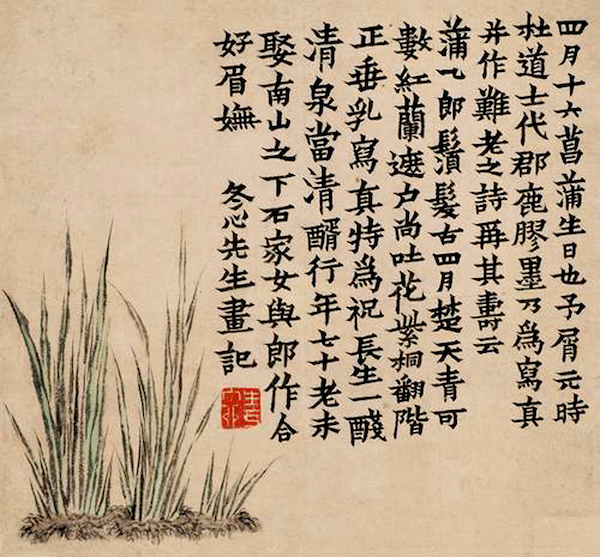 四月十六菖蒲生日也予屑元時
杜道士代郡鹿膠墨乃爲寫真
并作難老之詩再其壽云
蒲乀郎鬚髮古四月楚天青可
數紅蘭遮户尚吐花紫桐翻階
正垂乳寫真特爲祝長生一醆
清泉當清醑行年七十老未
娶南山之下石家女與郎作合
好眉嫵
冬心先生畫記